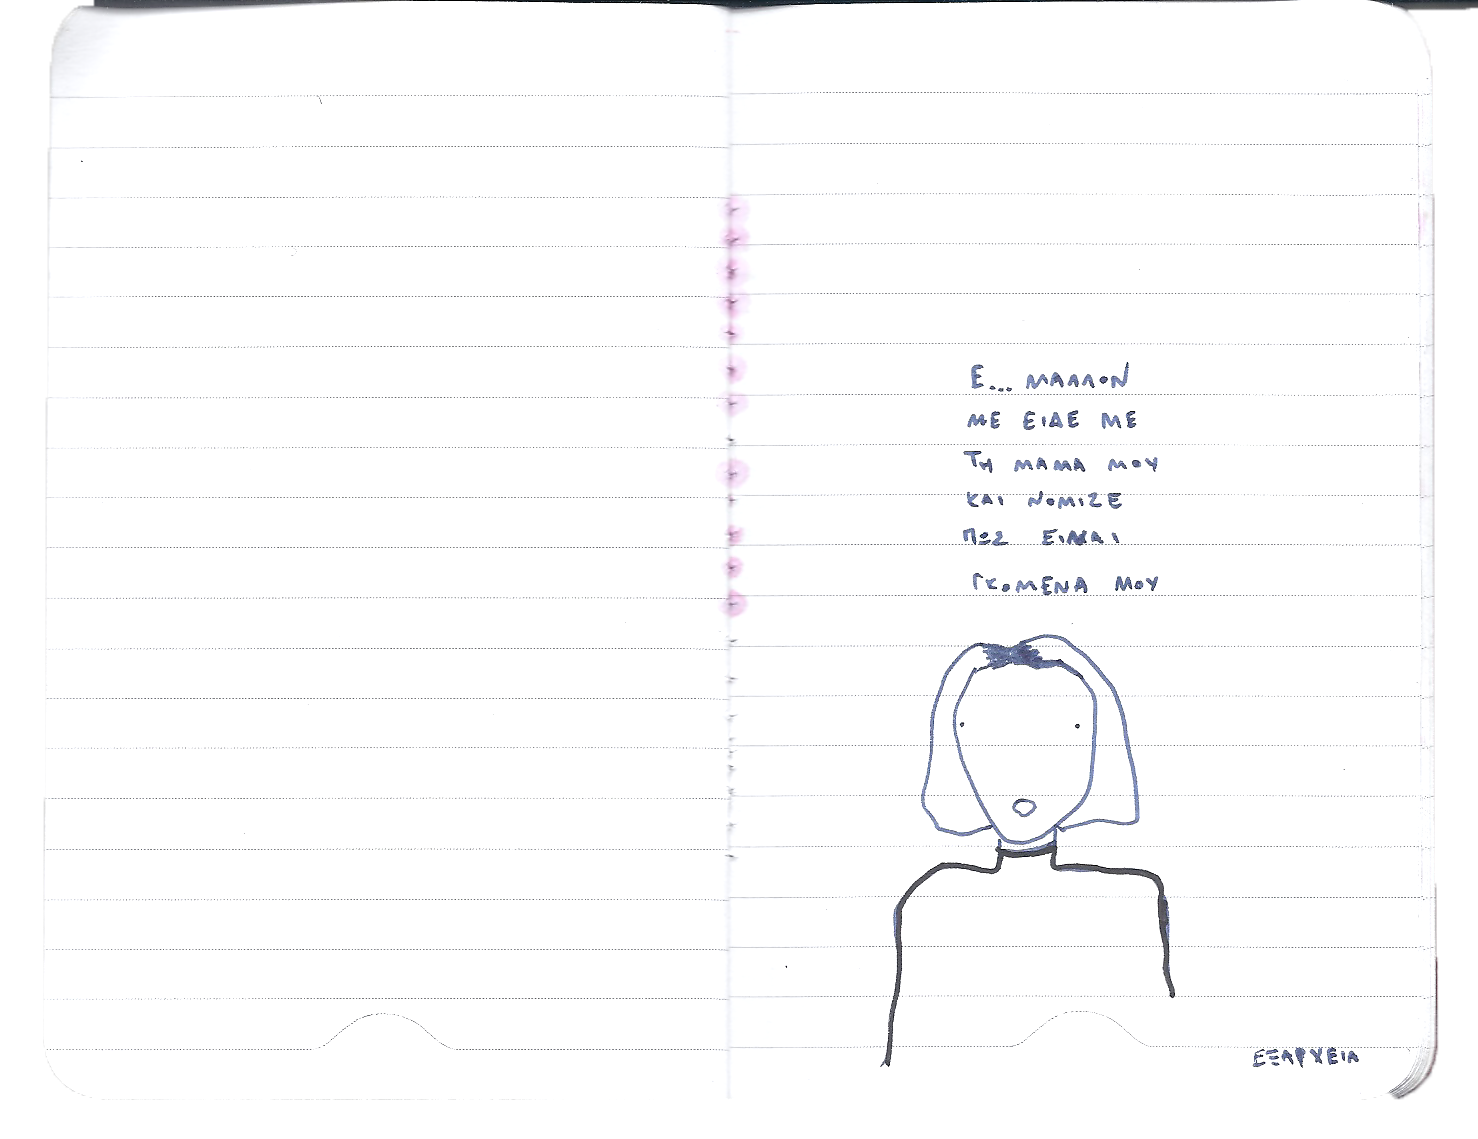 Ε... ΜΑΛΛΟΝ
ΜΕ ΕΙΔΕ ΜΕ
ΤΗ ΜΑΜΑ ΜΟΥ
ΚΑΙ ΝΟΜΙΖΕ
ΠΩΣ ΕΙΝΑΙ
ΓΚΟΜΕΝΑ ΜΟΥ
ΕΞΑΡΧΕΙΑ